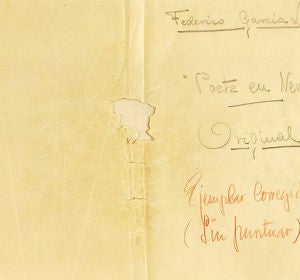 Federico García
"Poeta en
Original
Ejemplar Corregi
(Sin puntuar)